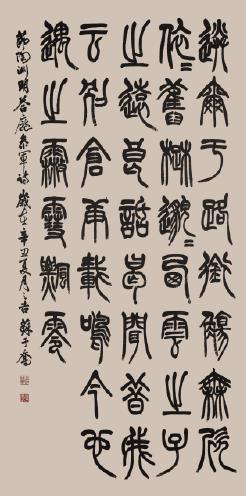 送爾于路銜觴無欣
依〻舊楚邈〻西雲之子
之遠良話曷聞昔我
云別倉庚載鳴今也
遇之霰雪飄零
節陶淵明答龐參軍詩歲在辛丑夏月之吉蘇